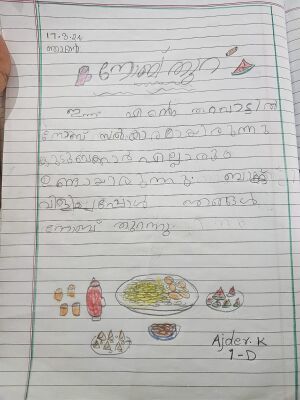 17-3-24
ഞായർ
നോമ്പ് തുറ
ഇന്ന് എന്റെ തറവാട്ടിൽ
നോമ്പ് സൽക്കാരമായിരുന്നു
കുടുംബക്കാർ എല്ലാരും
ഉണ്ടായിരുന്നു. ബാങ്ക്
വിളിച്ചപ്പോൾ ഞങ്ങൾ
നോമ്പ് തുറന്നു.
Ajder.K
1-D